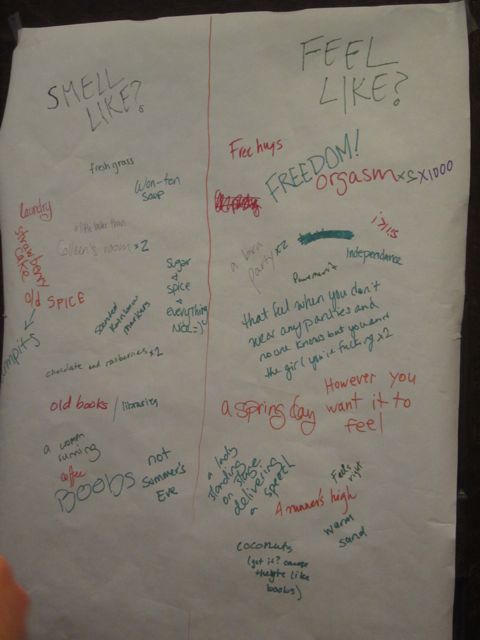 SMELL
LIKE?
fresh grass
Won-ton
soup
laundry
Colleen's room x2
strawberry
cake
Old SPICE
Sugar
&
spice
&
everything
scented
markers
chocolate and rasberries x2
old books / libraries
a women
running
coffee
BOOBS
not
Summer's
Eve
FEEL
LIKE?
Free hugs
FREEDOM!
orgasm x5 x1000
silky
a barn
party x2
independence
that feel when you don't
wear any panties and
no one knows but you and
the girl you're fucking x2
a spring day
However you
want it to
feel
a lady
standing
on stage
delivering
a speech
Feels
right
A runner's high
warm
sand
coconuts
(get it? cause
they're like
boobs)